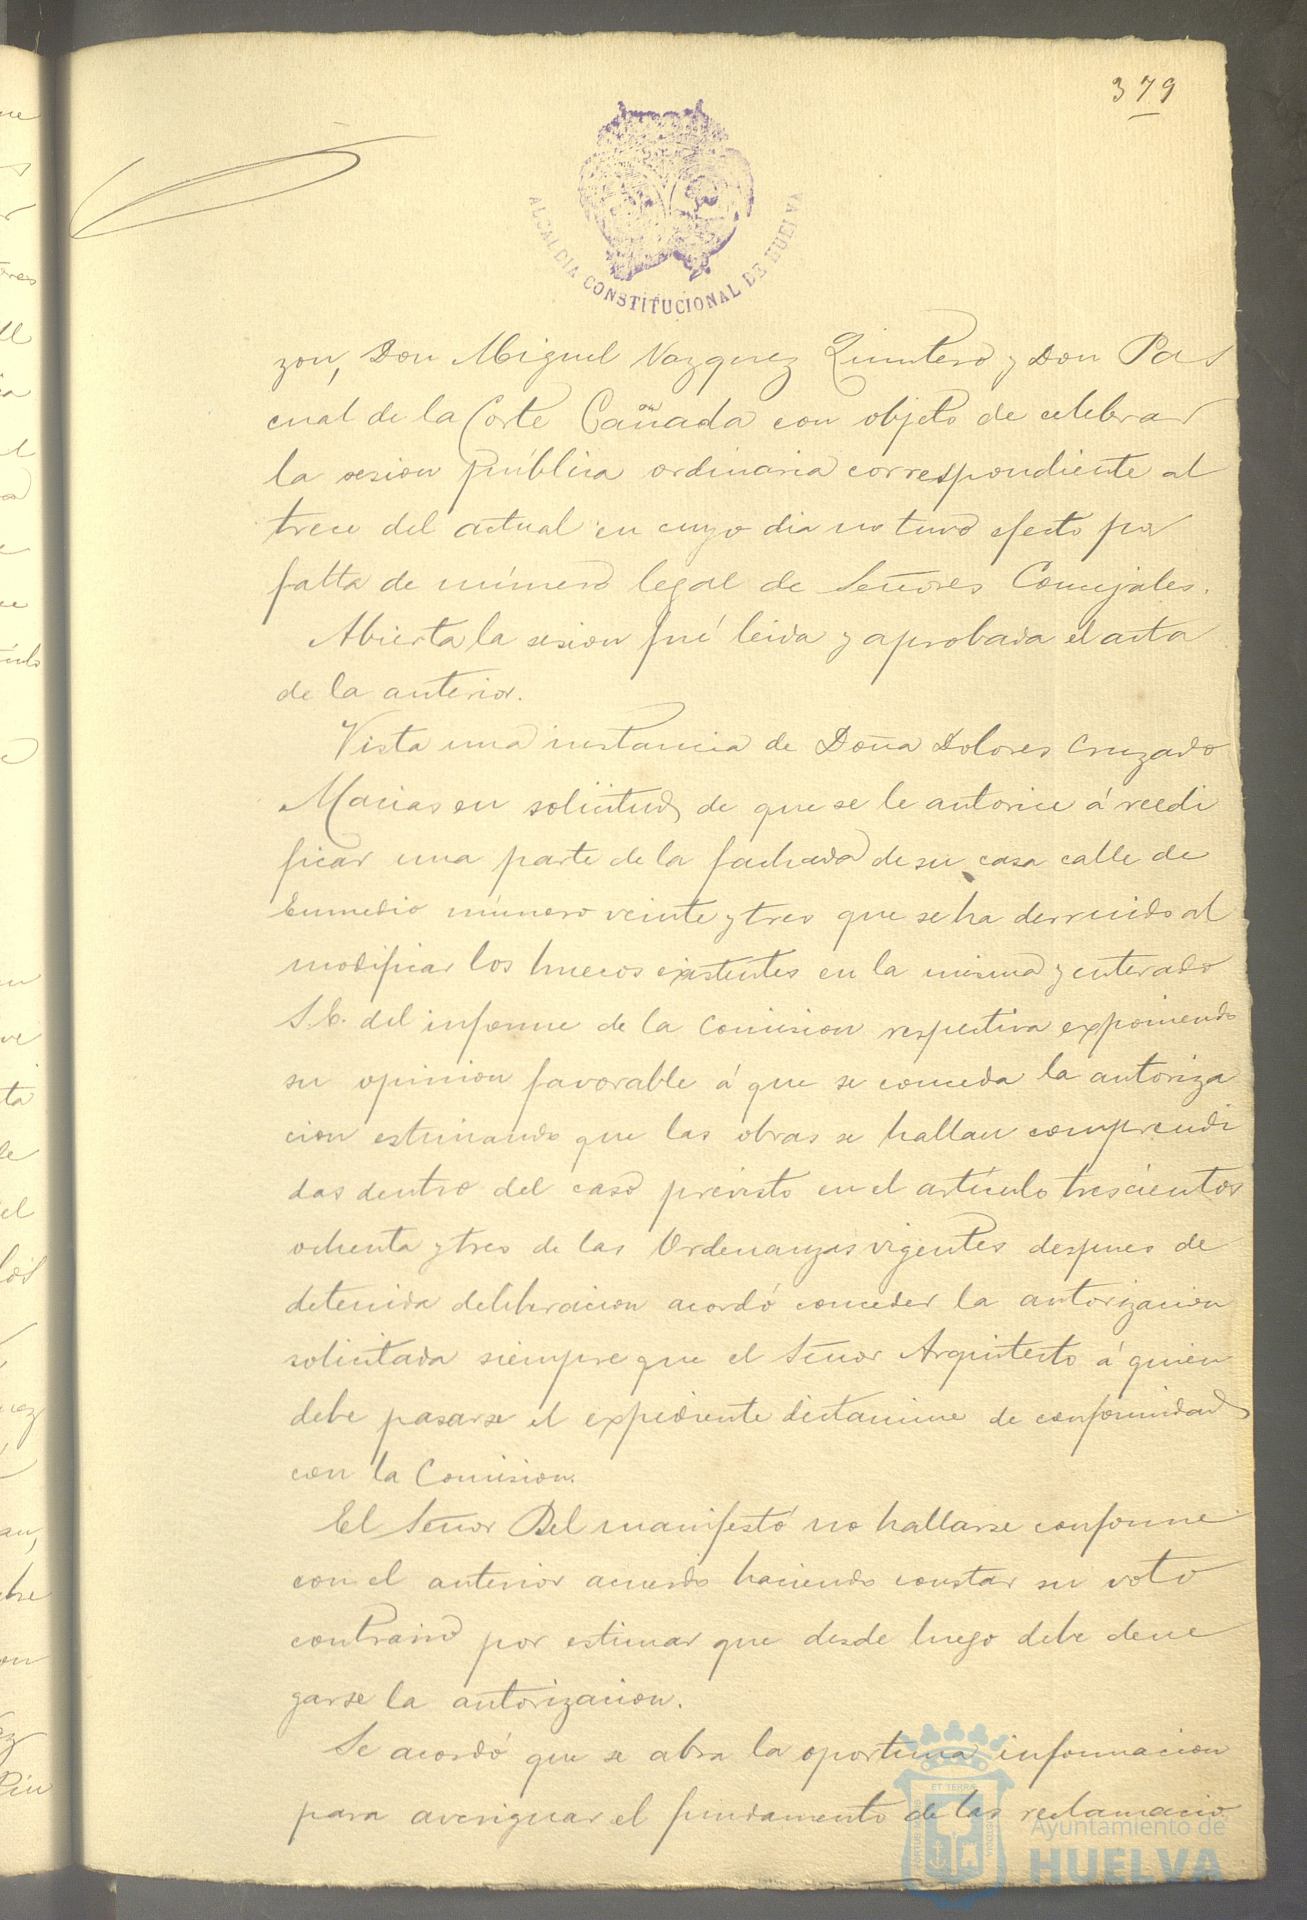 379
ALCALDIA CONSTITUCIONAL DE HUELVA
zon, Don Miguel Vazquez Quintero y Don Pas
cual de la Corte Cañada con objeto de celebrar
la sesion pública ordinaria correspondiente al
trece del actual en cuyo dia no tuvo efecto por
falta de número legal de Señores Concejales.
Abierta la sesion fué leida y aprobada el acta
de la anterior.
Vista una instancia de Doña Dolores Cruzado
Macias en solicitud de que se le autorice á reedi
ficar una parte de la fachada de su casa calle de
Enmedio número veinte y tres que se ha derruido al
modificar los huecos existentes en la misma y enterado
S.E. del informe de la Comision respectiva exponiendo
su opinion favorable á que se conceda la autoriza
cion estimando que las obras se hallan comprendi
das dentro del caso previsto en el artículo trescientos
ochenta y tres de las Ordenanzas vigentes despues de
detenida deliberacion acordó conceder la autorizacion
solicitada siempre que el Señor Arquitecto á quien
debe pasarse el expediente dictamine de conformidad
con la Comision.
El Señor Bel manifestó no hallarse conforme
con el anterior acuerdo haciendo constar su voto
contrario por estimar que desde luego debe dene
garse la autorizacion.
Se acordó que se abra la oportuna informacion
para averiguar el fundamento de las reclamacio
ET TERRÆ
Ayuntamiento de
HUELVA